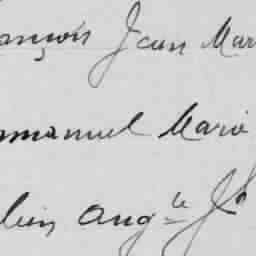 ançois Jean Mar
manuel Marie
lien Aug le Jh